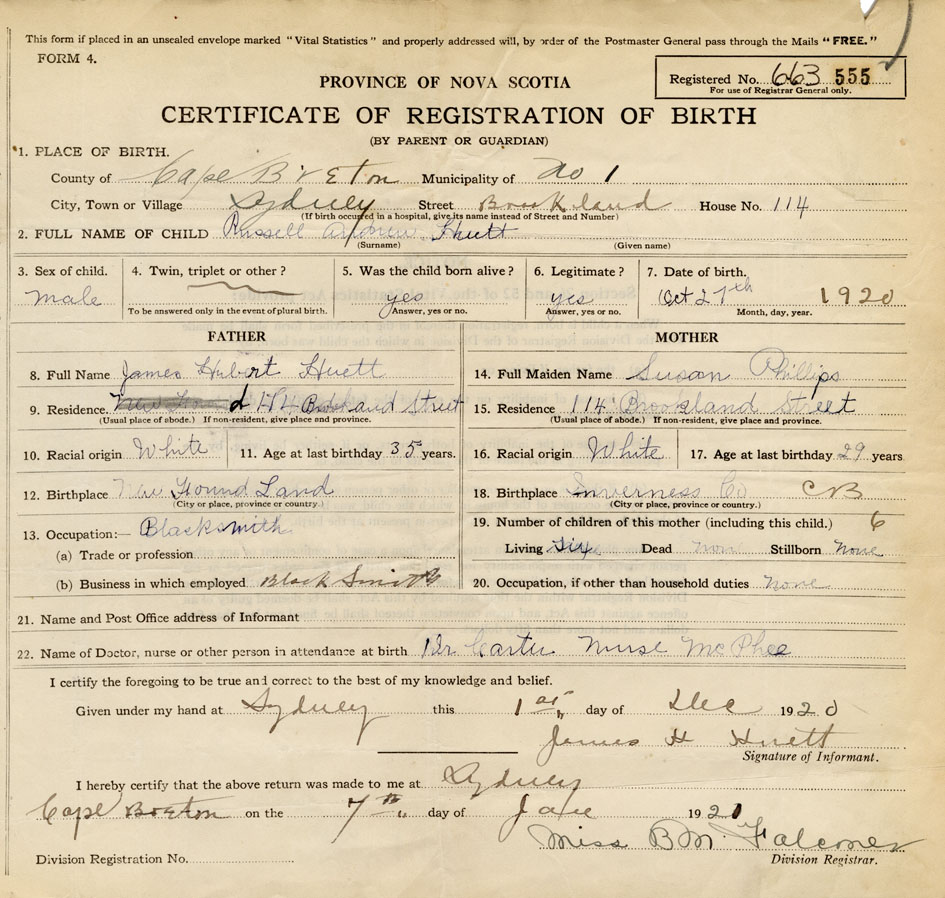 This form if placed in an unsealed envelope marked "Vital Statistics" and properly addressed will, by order of the Postmaster General pass through the Mails "FREE."
FORM 4.
Registered No. 663 555
For use of Registrar General only.
PROVINCE OF NOVA SCOTIA
CERTIFICATE OF REGISTRATION OF BIRTH
(BY PARENT OR GUARDIAN)
1. PLACE OF BIRTH.
County of Cape Breton Municipality of No 1
City, Town or Village Sydney Street Brookland House No. 114
(If birth occured in a hospital, give its name instead of Street and Number)
2. FULL NAME OF CHILD Russell Andrew Huett
(Surname) (Given name)
3. Sex of child. 4. Twin, triplet or other? 5. Was the child born alive? 6. Legitimate? 7. Date of birth.
male yes yes Oct 27th 1920
To be answered only in the event of plural birth. Answer, yes or no. Answer, yes or no. Month, day, year.
FATHER
8. Full Name James Hubert Huett
9. Residence. 114 Brookland Street
(Usual place of abode.) If non-resident, give place and province.
10. Racial origin White 11. Age at last birthday 35 years.
12. Birthplace New Found Land
(City or place, province or country.)
13. Occupation:— Blacksmith
(a) Trade or profession
(b) Business in which employed Black Smith
MOTHER
14. Full Maiden Name Susan Phillips
15. Residence 114 Brookland Street
(Usual place of abode.) If non-resident, give place and province.
16. Racial origin White 17. Age at last birthday 29 years
18. Birthplace Inverness Co CB
(City or place, province or country.)
19. Number of children of this mother (including this child.) 6
Living six Dead non Stillborn none
20. Occupation, if other than household duties none
21. Name and Post Office address of Informant
22. Name of Doctor, nurse or other person in attendance at birth Dr Carter Nurse McPhee
I certify the foregoing to be true and correct to the best of my knowledge and belief.
Given under my hand at Sydney this 1st day of Dec 1920
James H Huett
Signature of Informant.
I hereby certify that the above return was made to me at Sydney
Cape Breton on the 7th day of Jane 1921
Miss B M Falconer
Division Registration No. Division Registrar.